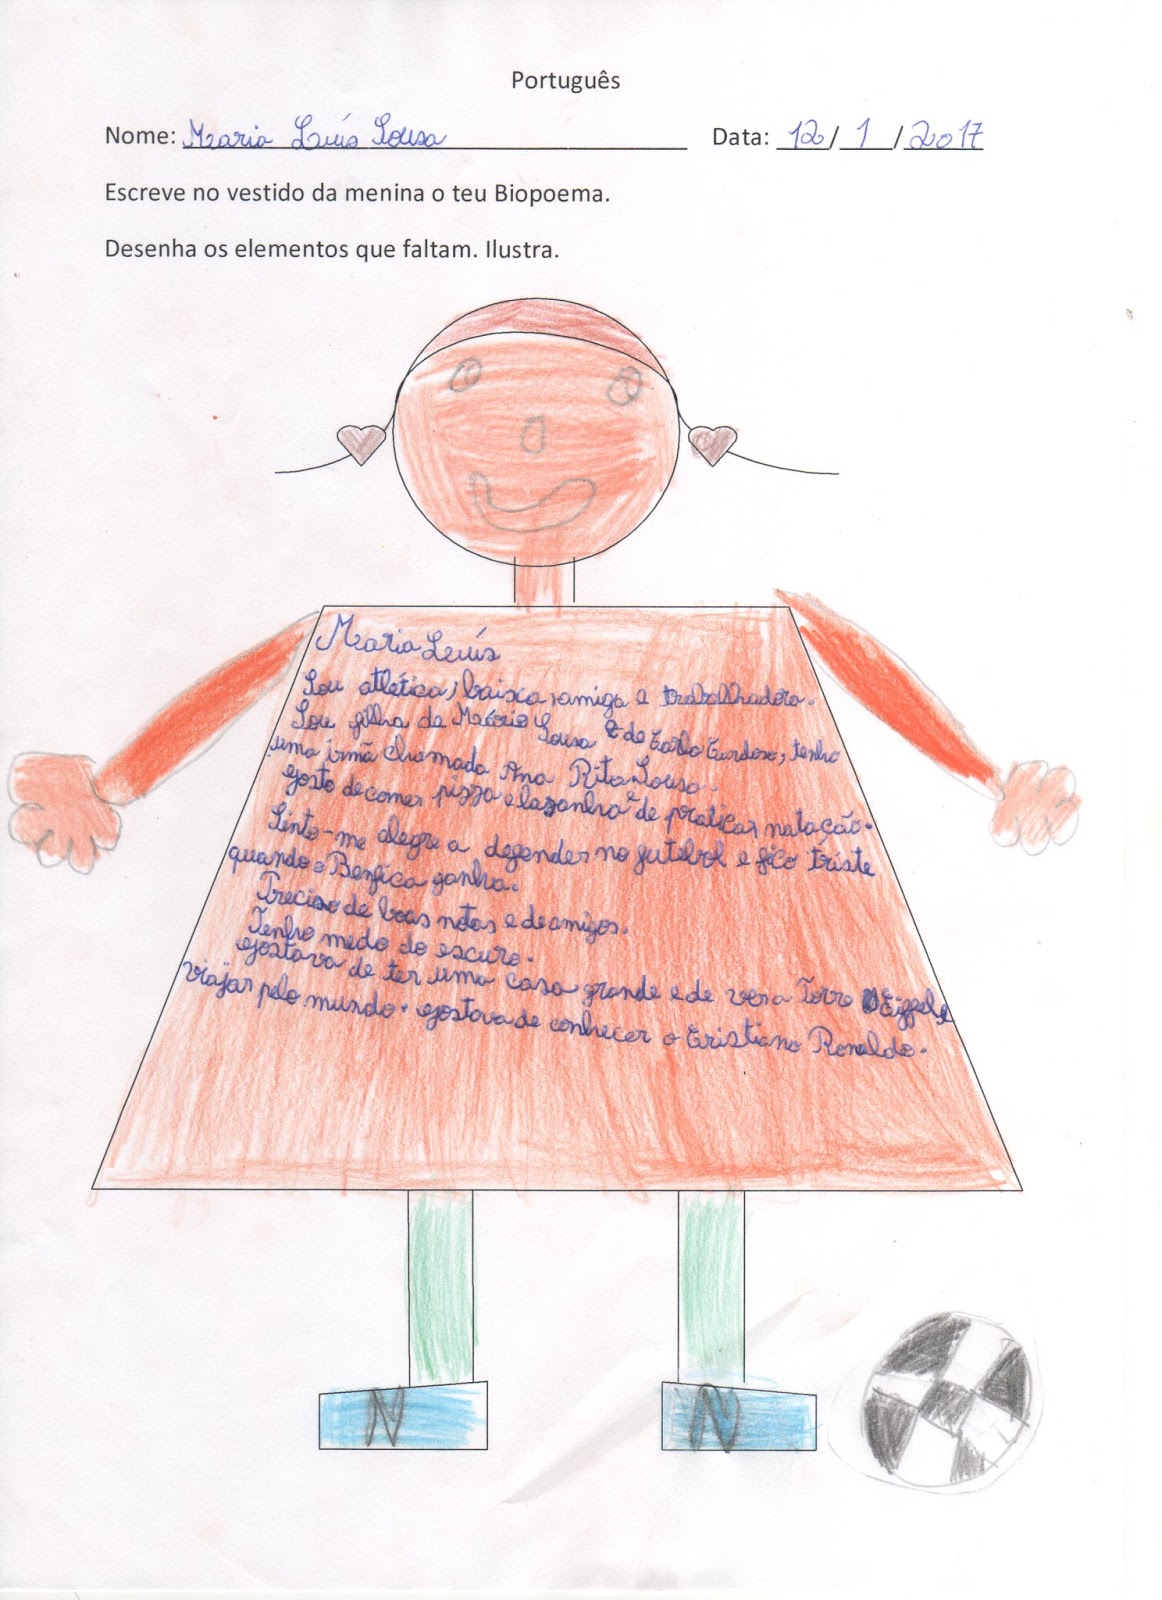 Português
Nome: Maria Luís Sousa Data: 12/1/2017
Escreve no vestido da menina o teu Biopoema.
Desenha os elementos que faltam. Ilustra.
Maria Luís
Sou atlética, baixa, amiga e trabalhadora.
Sou filha de Mário Sousa e de Carla Cardoso, tenho
uma irmã chamada Ana Rita Sousa.
Gosto de comer pizza e lazanha e de praticar natação.
Sinto-me alegre a defender no futebol e fico triste
quando o Benfica ganha.
Preciso de boas notas e de amigos.
Tenho medo do escuro.
Gostava de ter uma casa grande e de ver a Torre Eiffel e
viajar pelo mundo. Gostava de conhecer o Cristiano Ronaldo.
N N